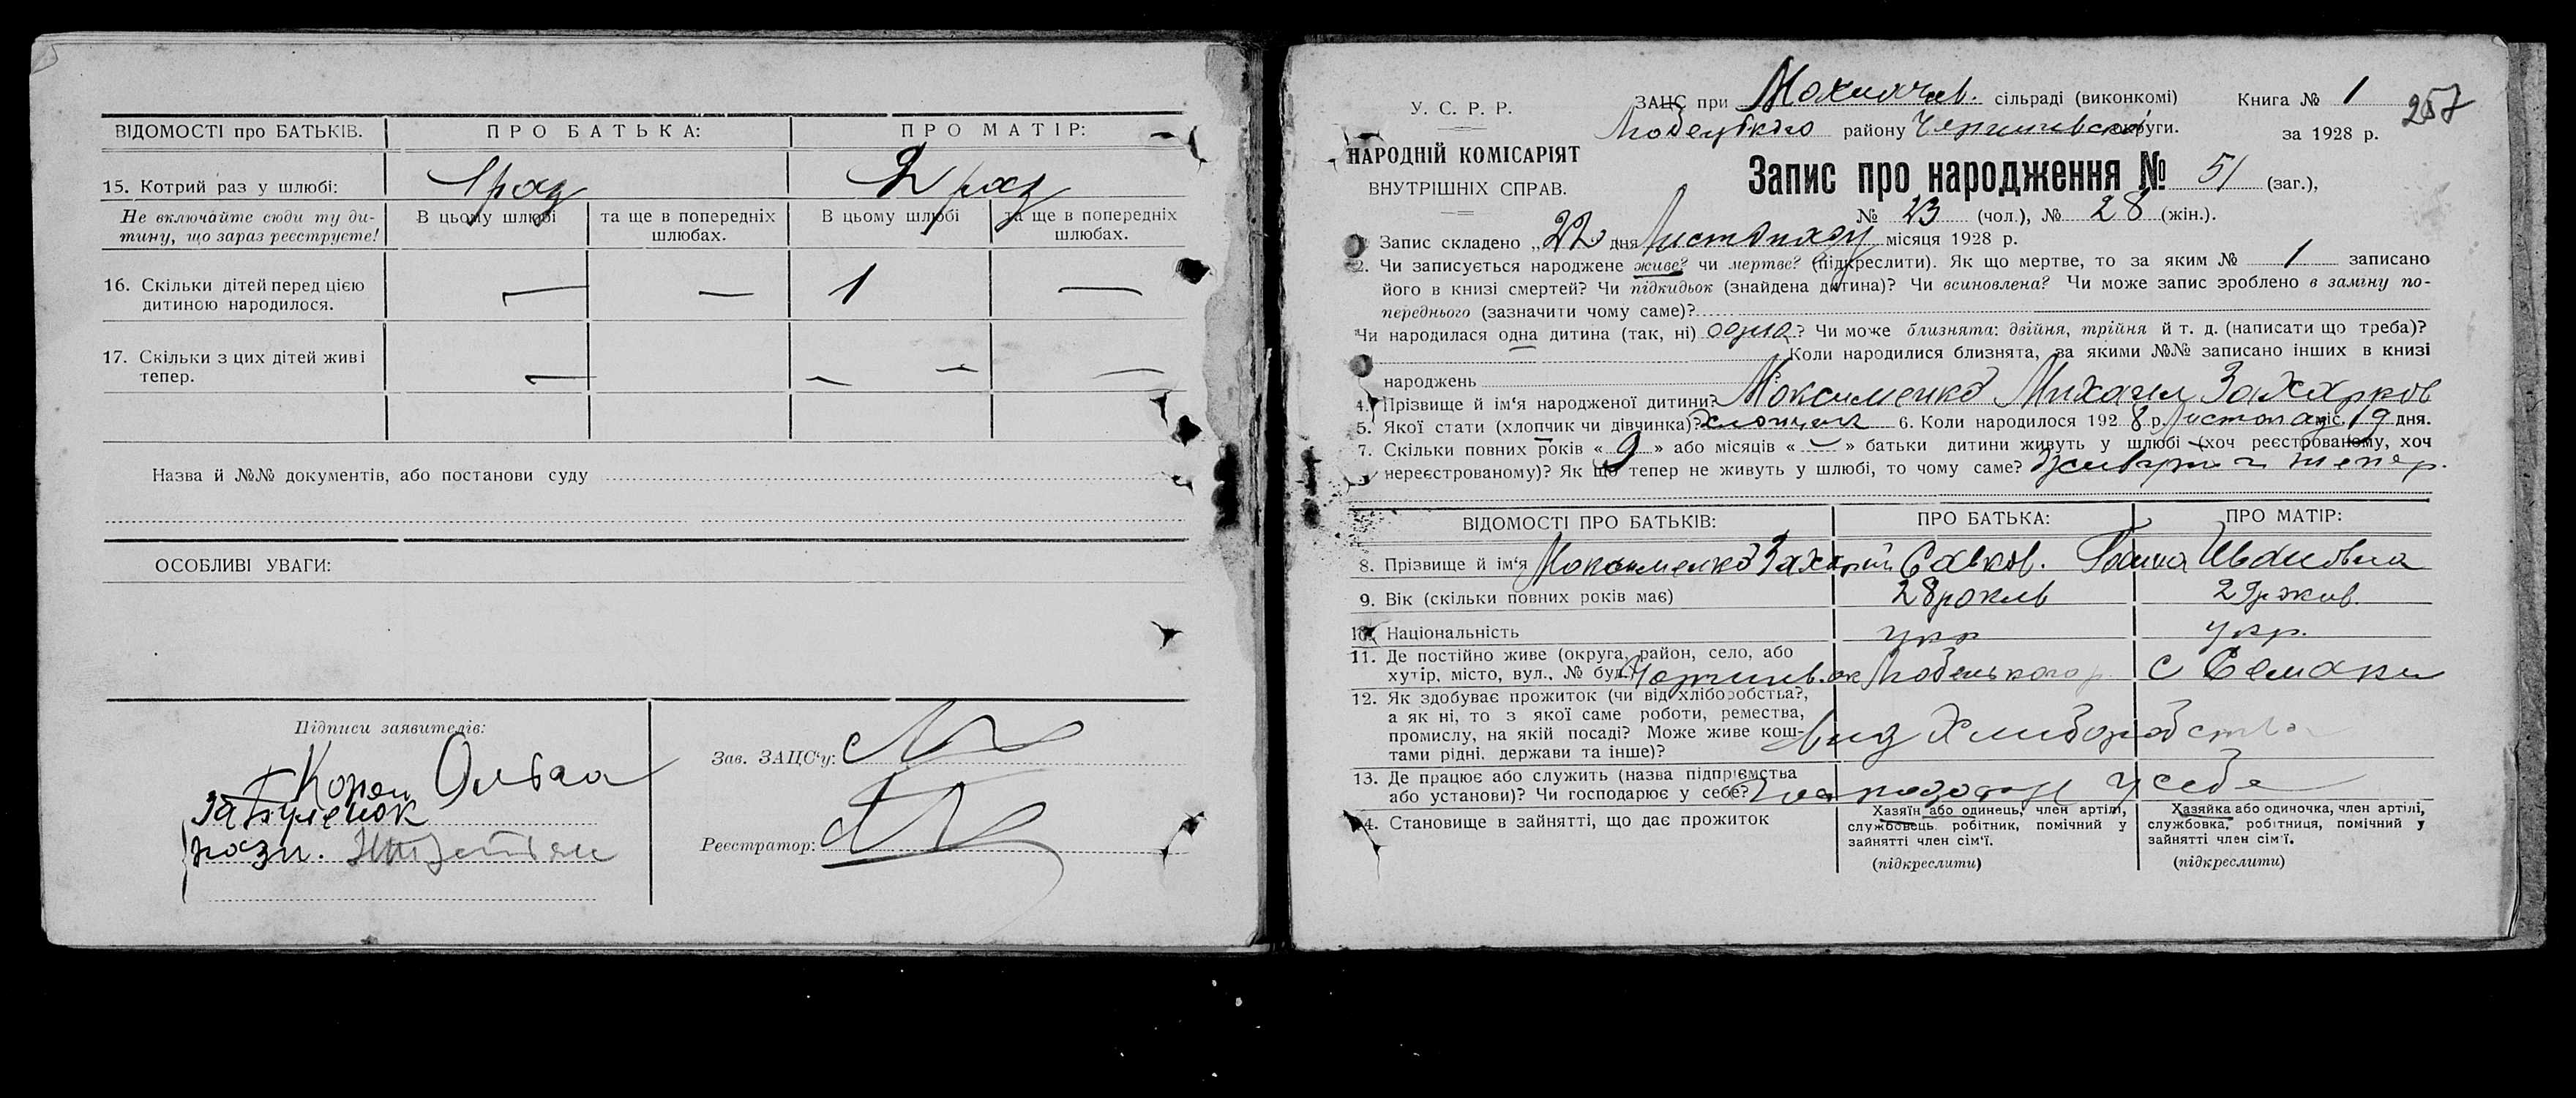 ВІДОМОСТІ про БАТЬКІВ. ПРО БАТЬКА: ПРО МАТІР:
15. Котрий раз у шлюбі: 1 раз 2 раз
Не включайте сюди ту ди- В цьому шлюбі та ще в попередніх В цьому шлюбі та ще в попередніх
тину, що зараз реєструєте! шлюбах. шлюбах.
16. Скільки дітей перед цією — — 1 —
дитиною народилося.
17. Скільки з цих дітей живі — — — —
тепер.
Назва й №№ документів, або постанови суду
ОСОБЛИВІ УВАГИ:
Підписи заявителів:
Ольга
Зав. ЗАЦС'у:
за
Реєстратор:
У. С. Р. Р.
НАРОДНІЙ КОМІСАРІЯТ
ВНУТРІШНІХ СПРАВ.
ЗАЦС при сільраді (виконкомі) Книга № 1 257
Любецького району Чернигівської округи. за 1928 р.
Запис про народження № 51 (заг.),
№ 23 (чол.), № 28 (жін.).
Запис складено „22 дня Листопаду місяця 1928 р.
2. Чи записується народжене живе? чи мертве? (підкреслити). Як що мертве, то за яким № 1 записано
його в книзі смертей? Чи підкидьок (знайдена дитина)? Чи всиновлена? Чи може запис зроблено в заміну по-
переднього (зазначити чому саме)?
Чи народилася одна дитина (так, ні) одна? Чи може близнята: двійня, трійня й т. д. (написати що треба)?
Коли народилися близнята, за якими №№ записано інших в книзі
народжень
4. Прізвище й ім'я народженої дитини? Максименко Михаил Захарков
5. Якої стати (хлопчик чи дівчинка)? Хлопчик 6. Коли народилося 1928 р. Листопад міс. 19 дня.
7. Скільки повних років « 9 » або місяців « — » батьки дитини живуть у шлюбі (хоч реєстрованому, хоч
нереєстрованому)? Як що тепер не живуть у шлюбі, то чому саме? Живуть и тепер.
ВІДОМОСТІ ПРО БАТЬКІВ: ПРО БАТЬКА: ПРО МАТІР:
8. Прізвище й ім'я Максименко Захарий Савков. Ганна Ивановна
9. Вік (скільки повних років має) 28 29
10. Національність укр укр.
11. Де постійно живе (округа, район, село, або
хутір, місто, вул., № буд.) Любецького р. с Семаки
12. Як здобуває прожиток (чи від хліборобства?,
а як ні, то з якої саме роботи, ремества,
промислу, на якій посаді? Може живе кош-
тами рідні, держави та інше)? Вид Хлиборобства
13. Де працює або служить (назва підприємства
або установи)? Чи господарює у себе? у себе
14. Становище в зайнятті, що дає прожиток
Хазяїн або одинець, член артілі,
службовець, робітник, помічний у
зайнятті член сім'ї.
(підкреслити)
Хазяйка або одиночка, член артілі,
службовка, робітниця, помічний у
зайнятті член сім'ї.
(підкреслити)